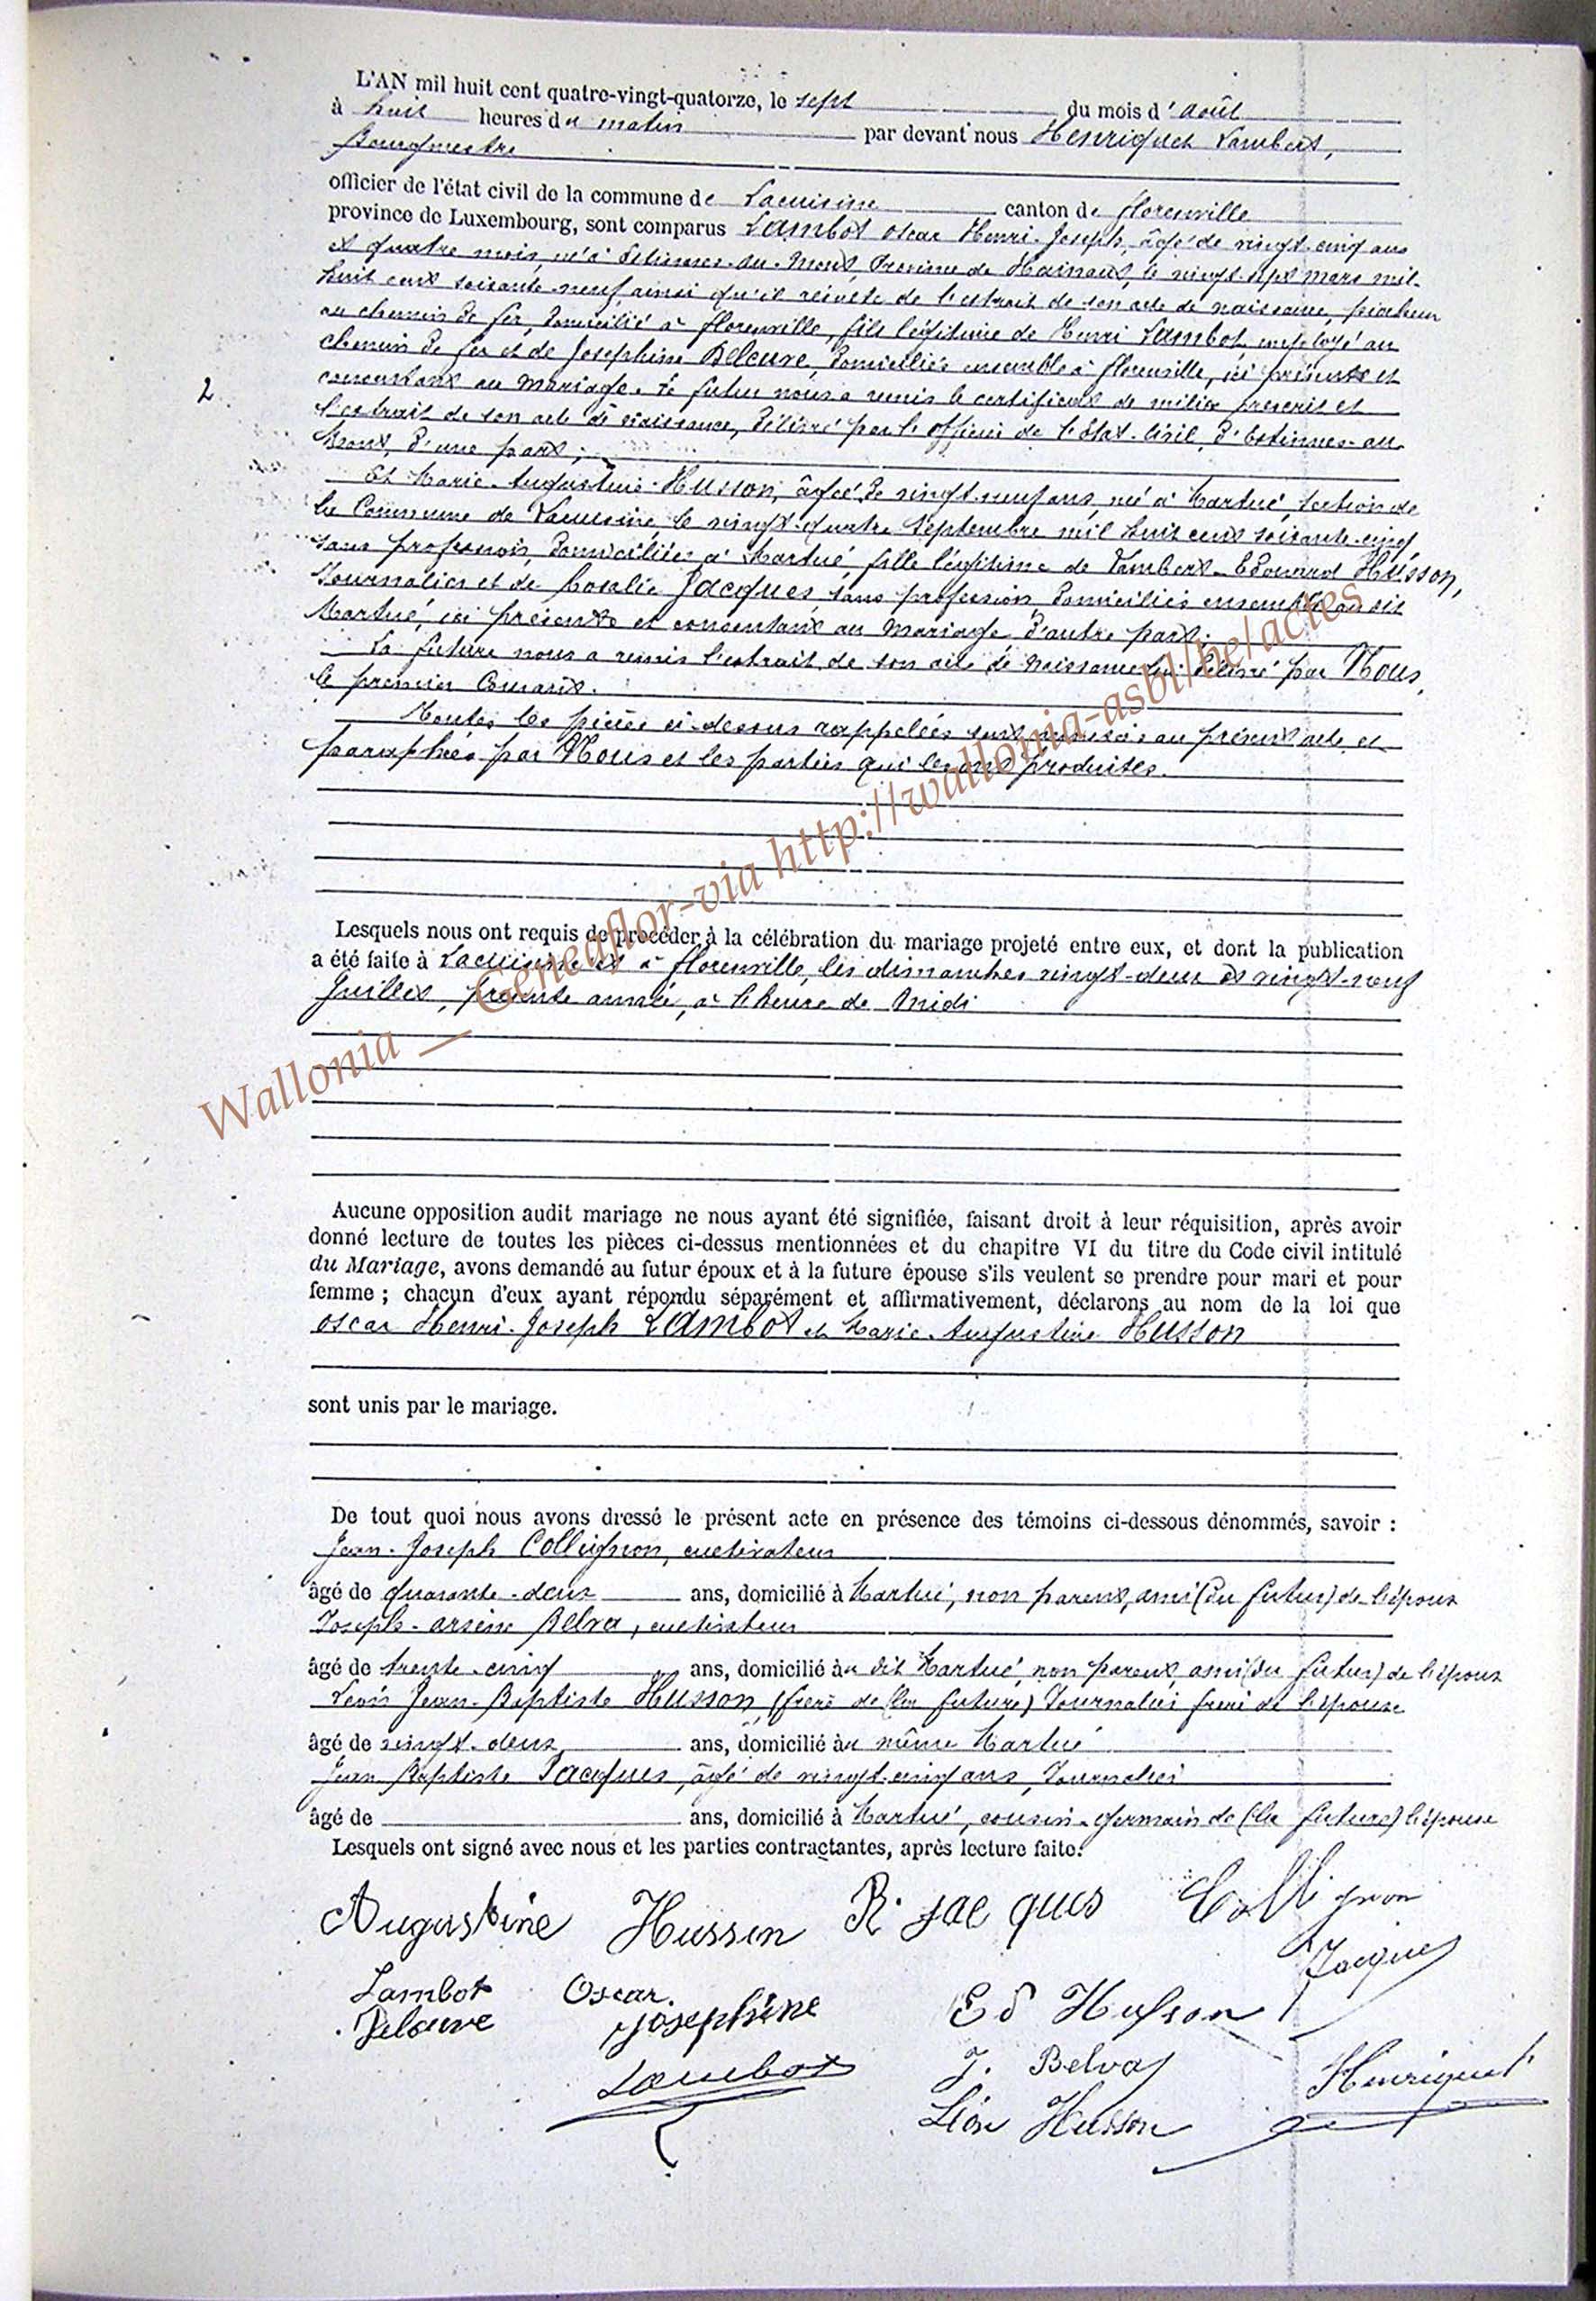 L'AN mil huit cent quatre-vingt-quatorze, le sept du mois d'août
à huit heures du matin par devant nous Henriquet Lambert,
Bourgmestre
officier de l'état civil de la commune de Lacuisine canton de florenville
province de Luxembourg, sont comparus Lambot oscar Henri-Joseph, âgé de vingt-cinq ans
et quatre mois, né à Estinnes-au-Mont, Province de Hainaut, le vingt-sept mars mil-
huit cent soixante-neuf ainsi qu'il résulte de l'extrait de son acte de naissance, piocheur
au chemin de fer, domicilié à florenville, fils légitime de Henri Lambot, employé au
chemin de fer et de Josephine Deleuve, domiciliés ensemble à florenville, ici présents et
consentant au mariage. Le futur nous a remis le certificat de milice prescrit et
2
l'extrait de son acte de naissance, délivré par l'officier de l'Etat-Civil d'Estinnes-au-
Mont, d'une part;
Et Marie-Augustine Husson, âgée de vingt-neuf ans, né à Martué, section de
la Commune de Lacuisine, le vingt-quatre Septembre mil huit cent soixante-cinq
sans profession, domiciliée à Martué, fille légitime de Lambert-Edouard Husson,
Journalier et de Rosalie Jacques, sans profession, domiciliés ensemble au dit
Martué, ici présents et consentant au mariage d'autre part.
La future nous a remis l'extrait de son acte de naissance délivré par Nous,
le premier Courant.
Toutes les pièces ci-dessus rappelées sont annexées au présent acte et
paraphées par Nous et les parties qui les ont produites.
Lesquels nous ont requis de procéder à la célébration du mariage projeté entre eux, et dont la publication
a été faite à Lacuisine et à florenville, les dimanches vingt-deux et vingt-neuf
Juillet, présente année, à l'heure de Midi
Wallonia __ Geneaflor-via http://wallonia-asbl/be/actes
Aucune opposition audit mariage ne nous ayant été signifiée, faisant droit à leur réquisition, après avoir
donné lecture de toutes les pièces ci-dessus mentionnées et du chapitre VI du titre du Code civil intitulé
du Mariage, avons demandé au futur époux et à la future épouse s'ils veulent se prendre pour mari et pour
femme ; chacun d'eux ayant répondu séparément et affirmativement, déclarons au nom de la loi que
oscar Henri-Joseph Lambot et Marie-Augustine Husson
sont unis par le mariage.
De tout quoi nous avons dressé le présent acte en présence des témoins ci-dessous dénommés, savoir :
Jean-Joseph Collignon, cultivateur
âgé de quarante-deux ans, domicilié à Martué, non parent, ami (du futur) de l'époux
Joseph-arsène Belva, cultivateur
âgé de trente-cinq ans, domicilié au dit Martué, non parent, ami (du futur) de l'époux
Léon Jean-Baptiste Husson, (frère de la future) Journalier frère de l'épouse
âgé de vingt-deux ans, domicilié au même Martué
Jean Baptiste Jacques, âgé de vingt-cinq ans, Journalier
âgé de ans, domicilié à Martué, cousin-germain de (la future) l'épouse
Lesquels ont signé avec nous et les parties contractantes, après lecture faite.
Augustine Husson R. jacques Collignon
Jacques
Lambot Oscar
Deleuve josephine Ed Husson
Lambot J. Belva Henriquet
Léon Husson